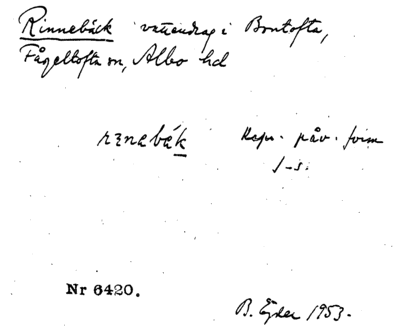 Rinnebäck vattendrag i Brutofta,
Fågeltofta sn, Albo hd
rɪnebäk påv. form
f-s.
Nr 6420.
B. Ejder 1953.